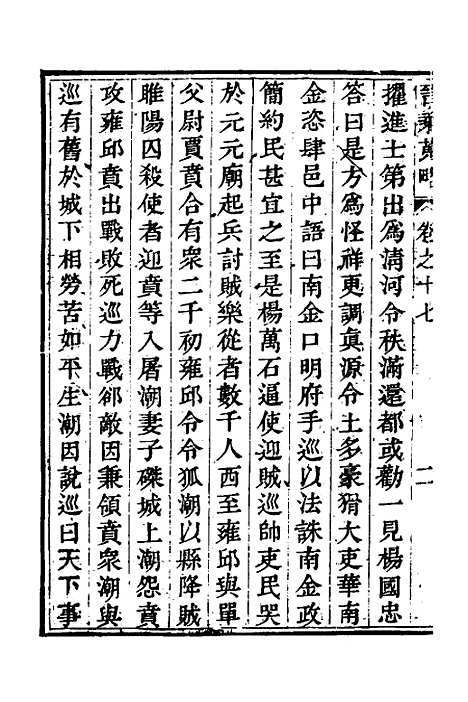 卷之十七
二
擢進士第出爲淸河令秩滿還都或勸一見楊國忠
答曰是方爲怪祥更調眞源令土多豪猾大吏華南
金恣肆邑中語曰南金口明府手巡以法誅南金政
簡約民甚宜之至是楊萬石逼使迎賊巡帥吏民哭
於元元廟起兵討賊樂從者數千人西至雍邱與單
父尉賈賁合有衆二千初雍邱令令狐潮以縣降賊
睢陽囚殺使者迎賁等入屠潮妻子磔城上潮怨賁
攻雍邱賁出戰敗死巡力戰卻敵因兼領賁衆潮與
巡有舊於城下相勞苦如平生潮因說巡曰天下事